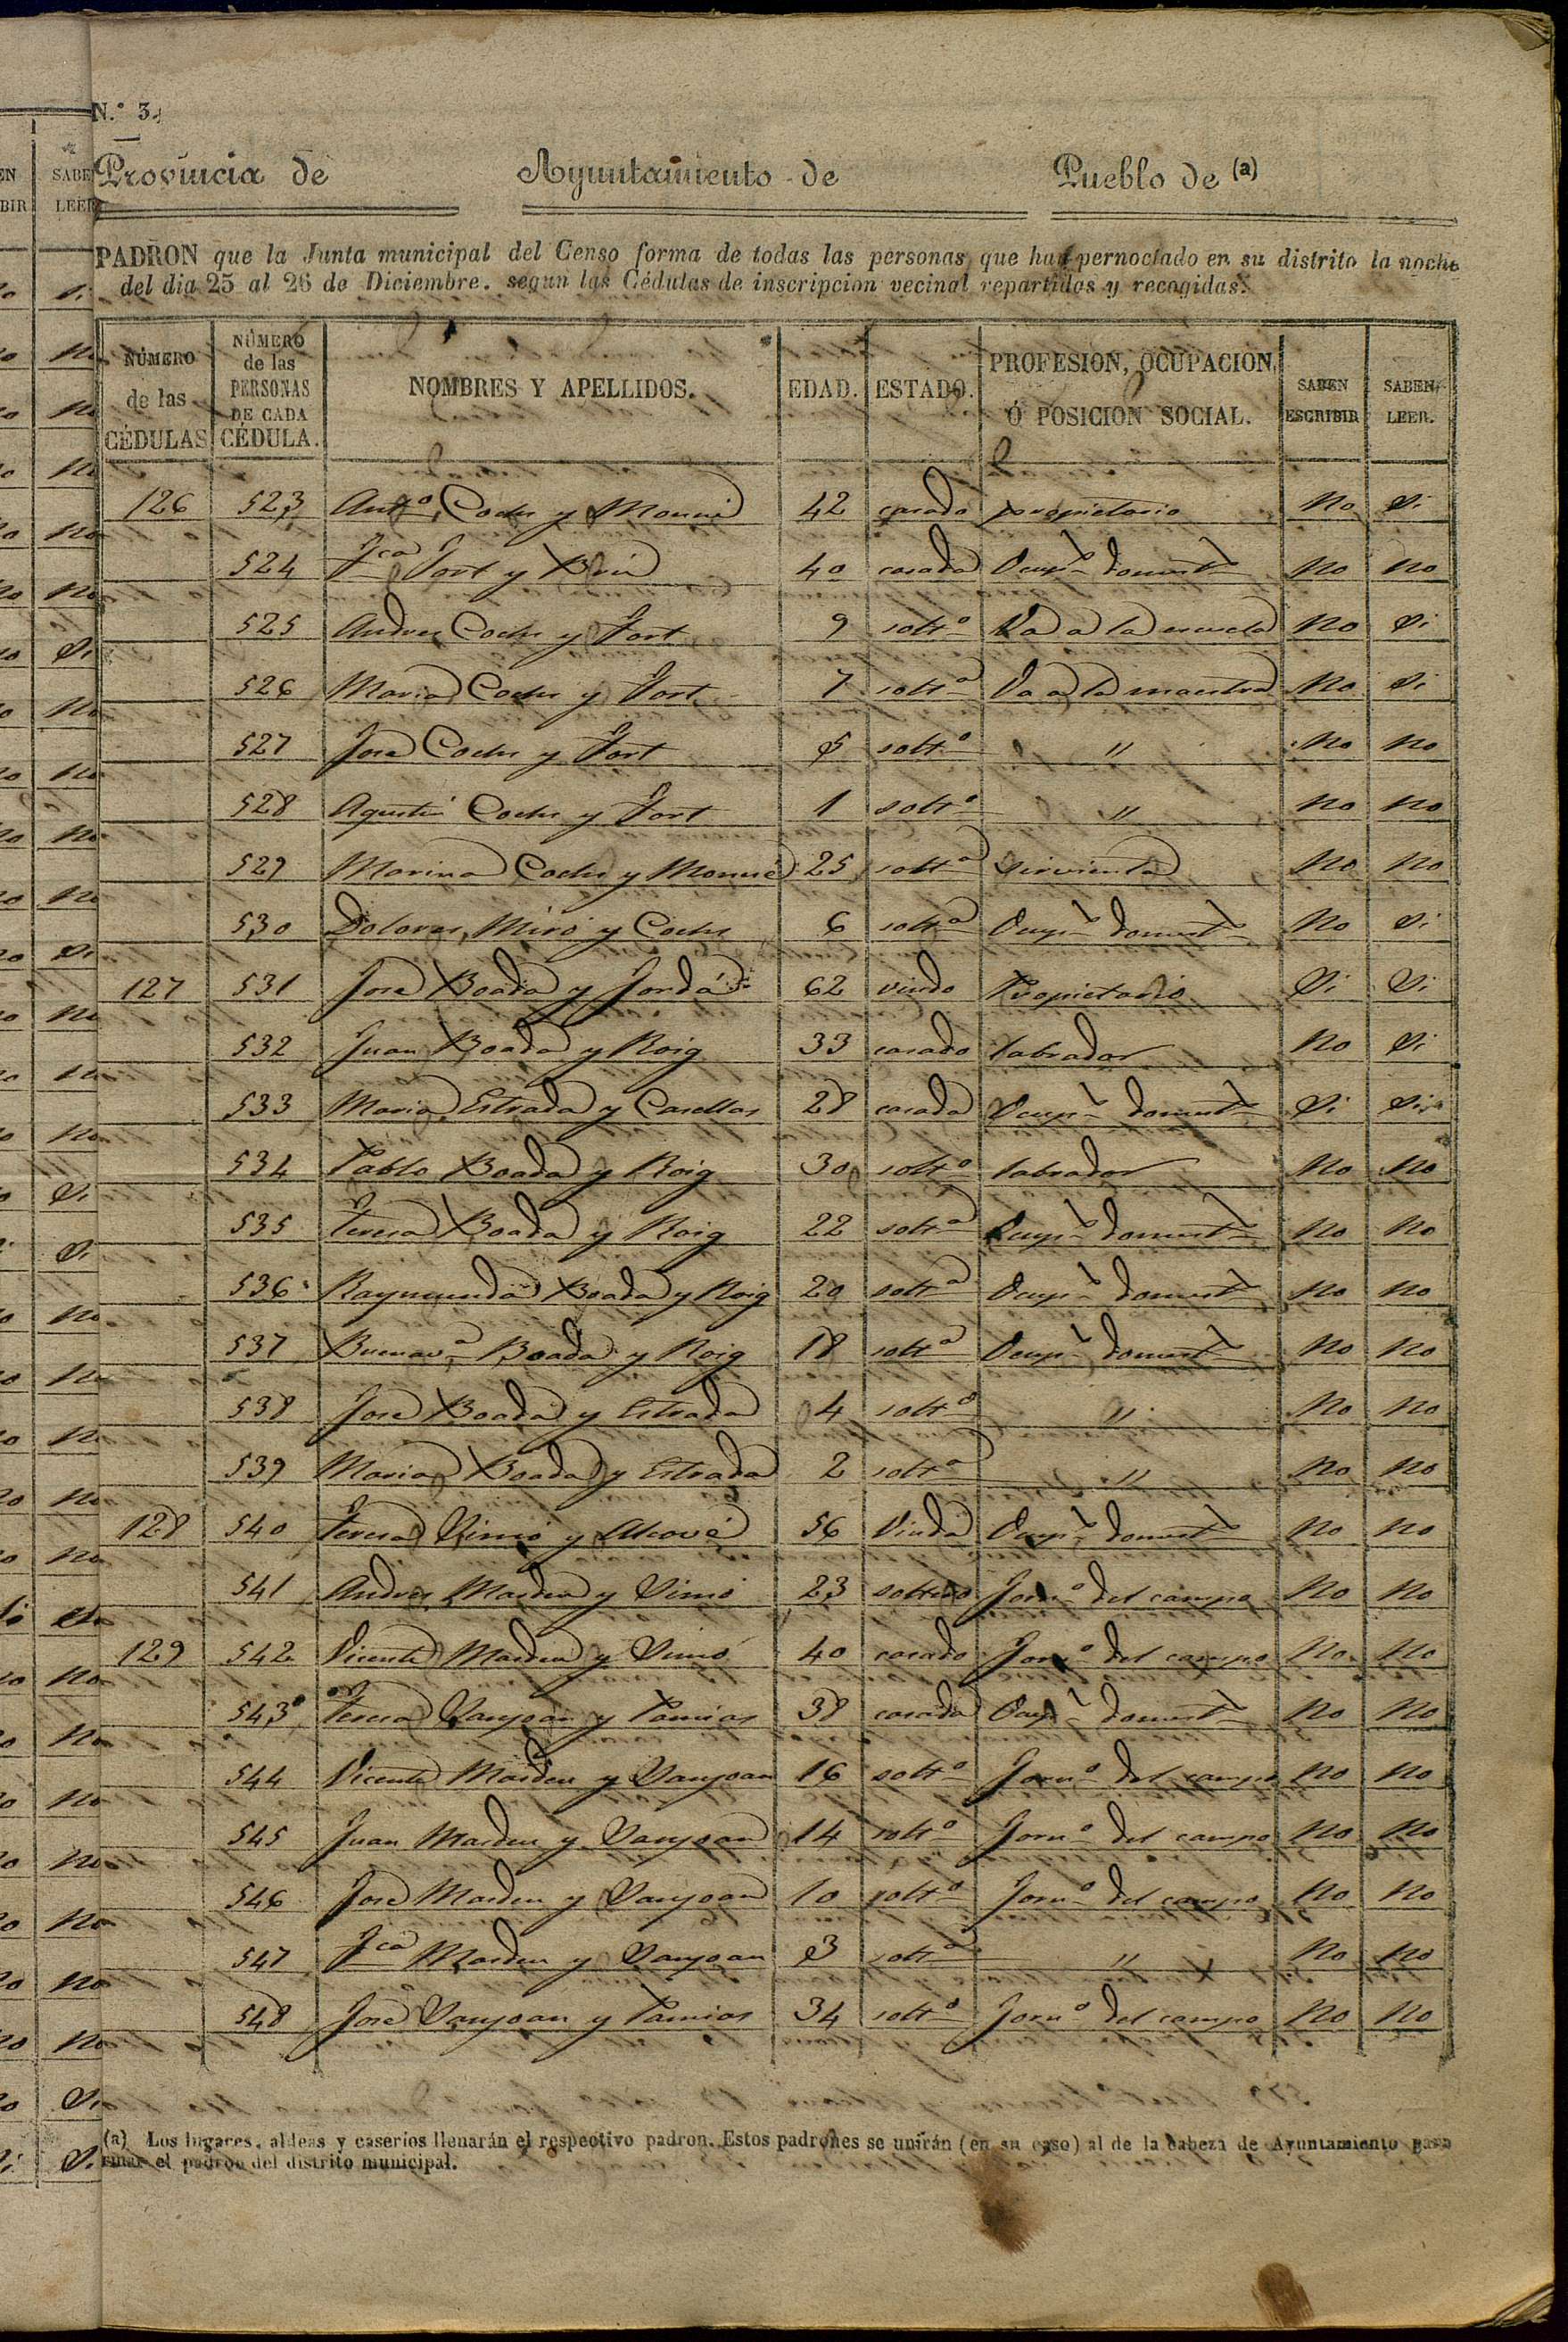 N.º 3.
Provincia de Ayuntamiento de Pueblo de (a)
PADRON que la Junta municipal del Censo forma de todas las personas que han pernoctado en su distrito la noche
del dia 25 al 26 de Diciembre, segun las Cédulas de inscripcion vecinal repartidas y recogidas.
NÚMERO de las CÉDULAS NÚMERO de las PERSONAS DE CADA CÉDULA. NOMBRES Y APELLIDOS. EDAD. ESTADO. PROFESION, OCUPACION, Ó POSICION SOCIAL. SABEN ESCRIBIR SABEN LEER.
126 523 Antº Codes y Monné 42 casado propietario No Si
524 Fca Fort y Briú 40 casada Ocupn domest No No
525 Andres Codes y Fort 9 soltº Va a la escuela No Si
526 Maria Codes y Fort 7 solta Va a la maestra No Si
527 Jose Codes y Fort 5 soltº " No No
528 Agustin Codes y Fort 1 soltº " No No
529 Marina Codes y Monné 25 solta sirvienta No No
530 Dolores Miró y Codes 6 solta Ocupn domest No Si
127 531 Jose Boada y Jordá 62 viudo Propietario Si Si
532 Juan Boada y Roig 33 casado labrador No Si
533 Maria Estrada y Casellas 28 casada Ocupn domest Si Si
534 Pablo Boada y Roig 30 soltº labrador No No
535 Teresa Boada y Roig 22 solta Ocupn domest No No
536 Raymunda Boada y Roig 20 solta Ocupn domest No No
537 Buenava Boada y Roig 18 solta Ocupn domest No No
538 Jose Boada y Estrada 4 soltº " No No
539 Maria Boada y Estrada 2 solta " No No
128 540 Teresa Simó y Alcové 56 Viuda Ocupn domest No No
541 Andres Masdeu y Simó 23 soltero Jornº del campo No No
129 542 Vicente Masdeu y Simó 40 casado Jornº del campo No No
543 Teresa Vanjoan y Pamias 38 casada Ocupn domest No No
544 Vicente Masdeu y Vanjoan 16 soltº Jornº del campo No No
545 Juan Masdeu y Vanjoan 14 soltº Jornº del campo No No
546 Jose Masdeu y Vanjoan 10 soltº Jornº del campo No No
547 Fca Masdeu y Vanjoan 3 solta " No No
548 José Vanjoan y Pamias 34 soltº Jornº del campo No No
(a) Los lugares, aldeas y caserios llenarán el respectivo padron. Estos padrones se unirán (en su caso) al de la cabeza de Ayuntamiento para
rmar el padron del distrito municipal.